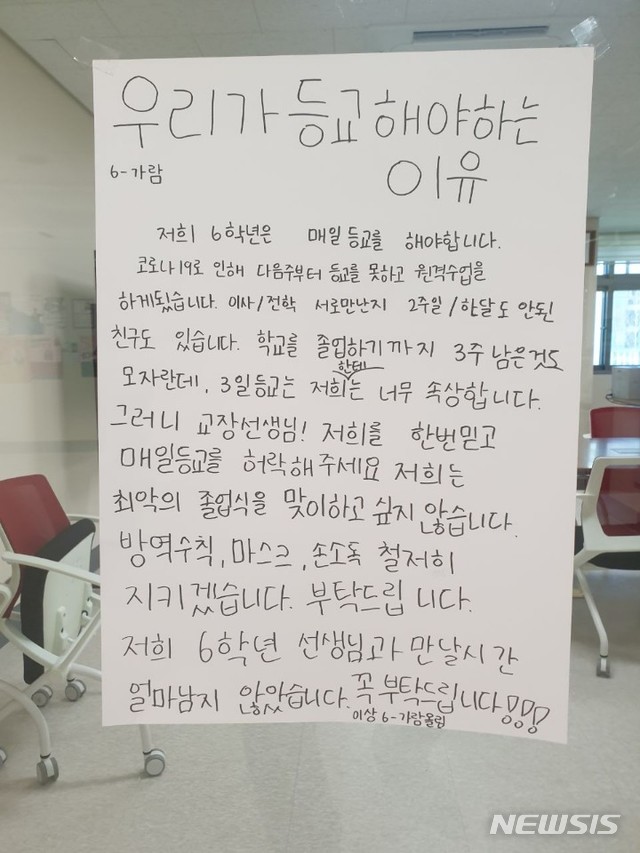 우리가 등교해야하는
이유
6-가람
저희 6학년은 매일 등교를 해야합니다.
코로나19로 인해 다음주부터 등교를 못하고 원격수업을
하게됐습니다. 이사/전학 서로만난지 2주일/한달도 안된
친구도 있습니다. 학교를 졸업하기까지 3주 남은것도
모자란데, 3일등교는 저희한테는 너무 속상합니다.
그러니 교장선생님! 저희를 한번믿고
매일등교를 허락해주세요 저희는
최악의 졸업식을 맞이하고 싶지 않습니다.
방역수칙, 마스크, 손소독 철저히
지키겠습니다. 부탁드립니다.
저희 6학년 선생님과 만날시간
얼마남지 않았습니다. 꼭 부탁드립니다!!!
이상 6-가람올림
NEWSIS